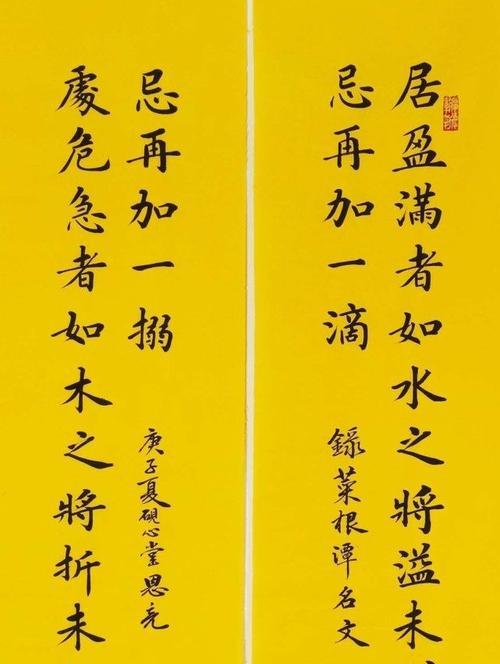 居盈滿者如水之將溢未
忌再加一滴
錄菜根潭名文
處危急者如木之將折未
忌再加一搦
庚子夏硯心堂恩亮